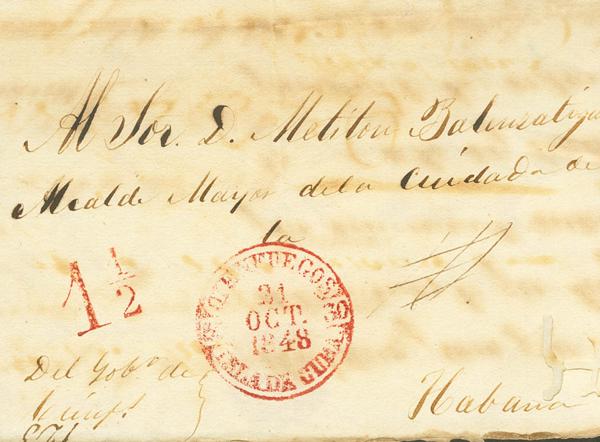 Al Sor. D. Meliton Balenzategui
Alcalde Mayor de la Ciudad de
la
1 1/2
CIENFUEGOS
21
OCT.
1848
ISLA DE CUBA
Del Gobr. de
Habana